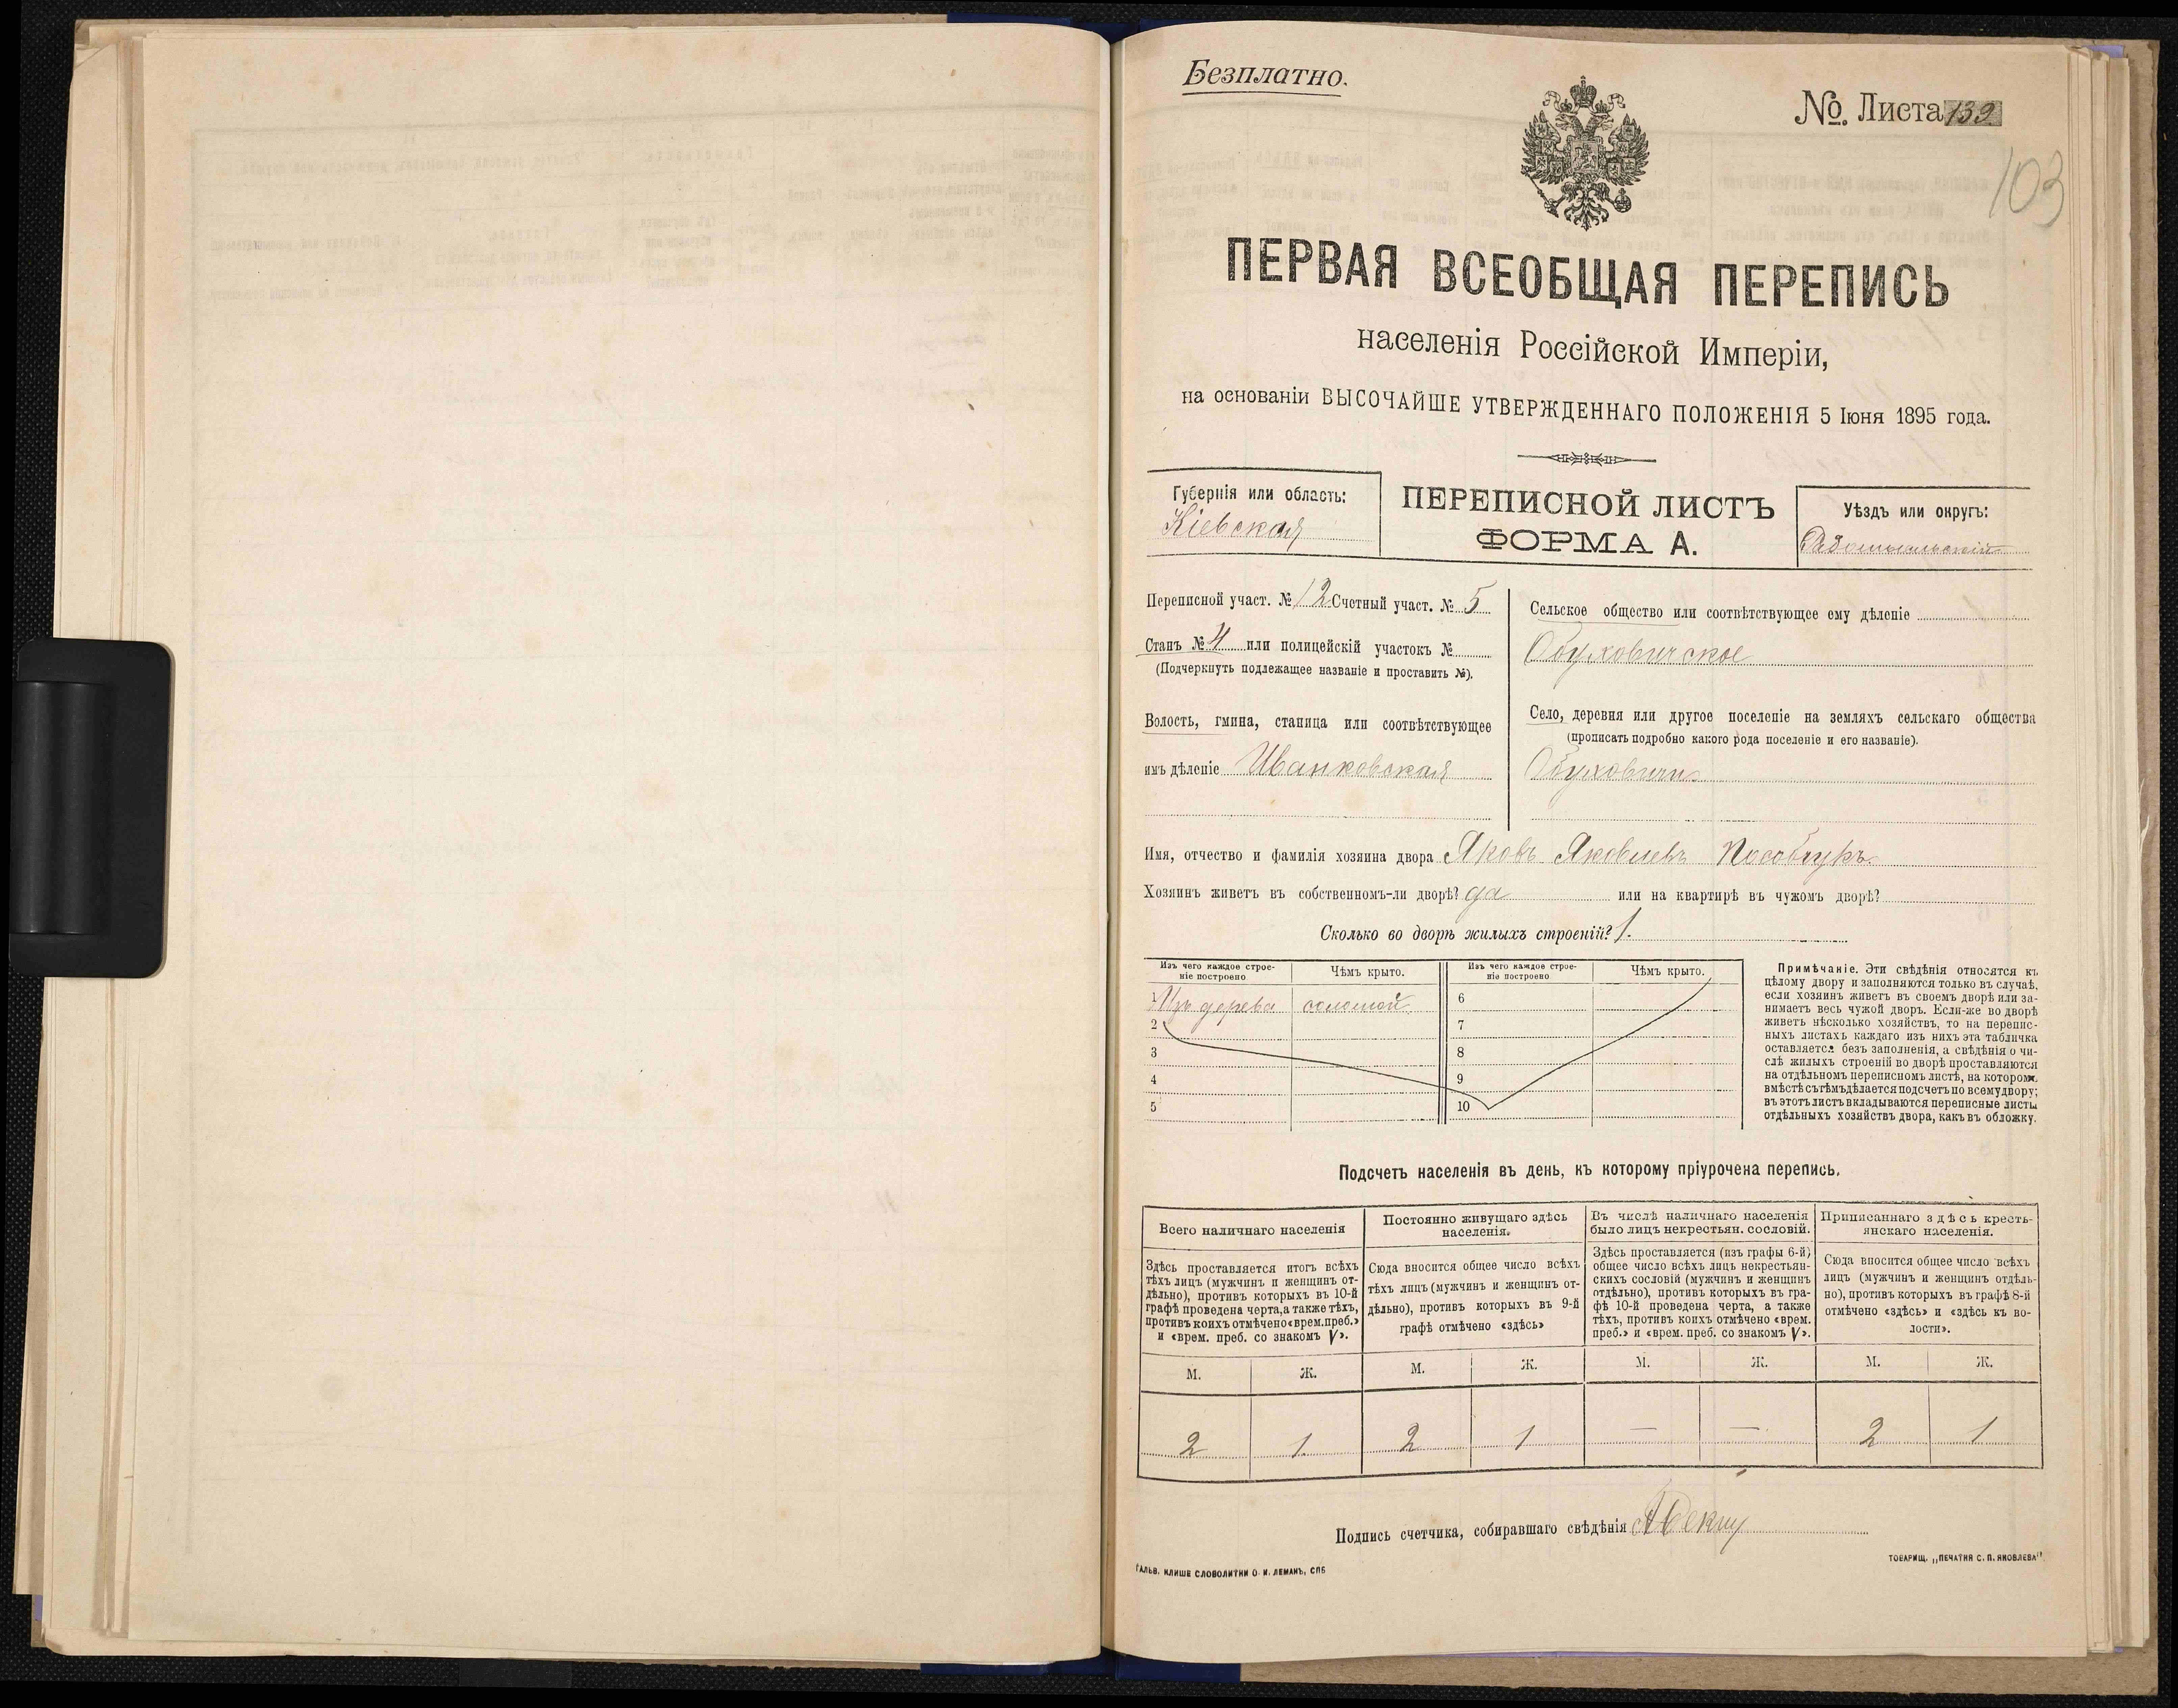 Безплатно.
№ Листа 139.
103
ПЕРВАЯ ВСЕОБЩАЯ ПЕРЕПИСЬ
населенія Россійской Имперіи,
на основаніи ВЫСОЧАЙШЕ УТВЕРЖДЕННАГО ПОЛОЖЕНІЯ 5 Іюня 1895 года.
Губернія или область:
Кіевская
ПЕРЕПИСНОЙ ЛИСТЪ
ФОРМА А.
Уѣздъ или округъ:
Радомысльскій
Переписной участ. № 12 Счетный участ. № 5
Станъ № 4 или полицейскій участокъ №
(Подчеркнуть подлежащее названіе и проставить №).
Волость, гмина, станица или соотвѣтствующее
имъ дѣленіе Иванковская
Сельское общество или соотвѣтствующее ему дѣленіе
Обуховичское
Село, деревня или другое поселеніе на земляхъ сельскаго общества
(прописать подробно какого рода поселеніе и его названіе).
Обуховичи
Имя, отчество и фамилія хозяина двора Яковъ Яковлевъ
Хозяинъ живетъ въ собственномъ-ли дворѣ? да или на квартирѣ въ чужомъ дворѣ?
Сколько во дворѣ жилыхъ строеній? 1.
Изъ чего каждое строе-
ніе построено
Чѣмъ крыто.
Изъ чего каждое строе-
ніе построено.
Чѣмъ крыто.
Изъ дерева соломой 6
2 7
3 8
4 9
5 10
Примѣчаніе. Эти свѣдѣнія относятся къ
цѣлому двору и заполняются только въ случаѣ,
если хозяинъ живетъ въ своемъ дворѣ или за-
нимаетъ весь чужой дворъ. Если-же во дворѣ
живетъ нѣсколько хозяйствъ, то на перепис-
ныхъ листахъ каждаго изъ нихъ эта табличка
оставляется безъ заполненія, а свѣдѣнія о чи-
слѣ жилыхъ строеній во дворѣ проставляются
на отдѣльномъ переписномъ листѣ, на которомъ
вмѣстѣ съ тѣмъ дѣлается подсчетъ по всему двору;
въ этотъ листъ вкладываются переписные листы
отдѣльныхъ хозяйствъ двора, какъ въ обложку.
Подсчетъ населенія въ день, къ которому пріурочена перепись.
Всего наличнаго населенія
Здѣсь проставляется итогъ всѣхъ
тѣхъ лицъ (мужчинъ и женщинъ от-
дѣльно), противъ которыхъ въ 10-й
графѣ проведена черта, а также тѣхъ,
противъ коихъ отмѣчено «врем. преб.»
и «врем. преб. со знакомъ V».
Постоянно живущаго здѣсь
населенія.
Сюда вносится общее число всѣхъ
тѣхъ лицъ (мужчинъ и женщинъ от-
дѣльно), противъ которыхъ въ 9-й
графѣ отмѣчено «здѣсь»
Въ числѣ наличнаго населенія
было лицъ некрестьян. сословій.
Здѣсь проставляется (изъ графы 6-й)
общее число всѣхъ лицъ некрестьян-
скихъ сословій (мужчинъ и женщинъ
отдѣльно), противъ которыхъ въ гра-
фѣ 10-й проведена черта, а также
тѣхъ, противъ коихъ отмѣчено «врем.
преб.» и «врем. преб. со знакомъ V».
Приписаннаго здѣсь кресть-
янскаго населенія.
Сюда вносится общее число всѣхъ
лицъ (мужчинъ и женщинъ отдѣль-
но), противъ которыхъ въ графѣ 8-й
отмѣчено «здѣсь» и «здѣсь къ во-
лости».
М. Ж. М. Ж. М. Ж. М. Ж.
2 1 2 1 — — 2 1
Подпись счетчика, собиравшаго свѣдѣнія
ГАЛЬВ. КЛИШЕ СЛОВОЛИТНИ О. И. ЛЕМАНЪ, СПБ
ТОВАРИЩ. „ПЕЧАТНЯ С. П. ЯКОВЛЕВА"